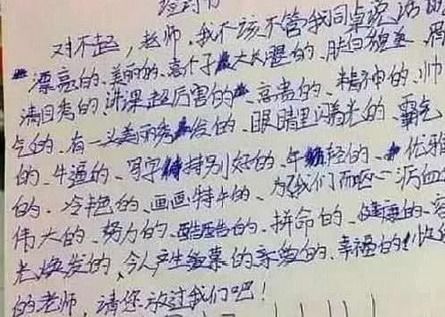 对不起，老师，我不该不管我同桌说话的
漂亮的、美丽的、高个子大长腿的、肤白貌美、眉
清目秀的、讲课超厉害的、高贵的、精神的、帅
气的、有一头美丽秀发的、眼睛里闪着光的、霸气
的、牛逼的、写字特别好的、年轻的、优雅
的、冷艳的、画画特牛的、为我们而呕心沥血的
伟大的、努力的、酷酷的、拼命的、健康的、容
光焕发的、令人产生羡慕的亲爱的、幸福的、快
的老师，请您放过我们吧！